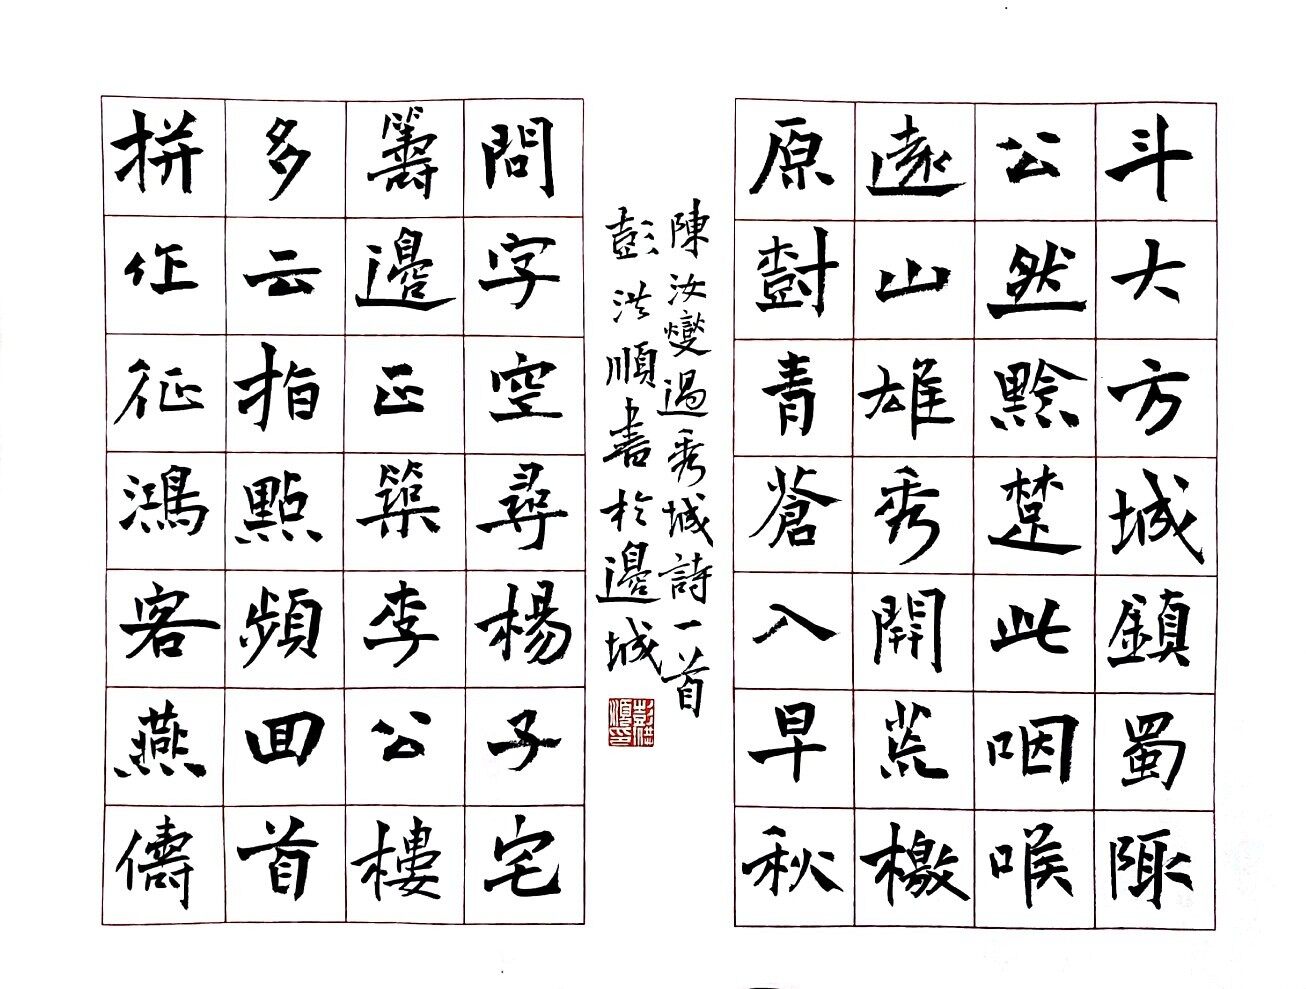 斗大方城鎮蜀陬
公然黔楚此咽喉
遠山雄秀開荒檄
原樹青蒼入早秋
問字空尋楊子宅
籌邊正築李公樓
多云指點頻回首
拼作征鴻客燕儔
陳汝燮過秀城詩一首
彭洪順書於邊城
彭洪順印